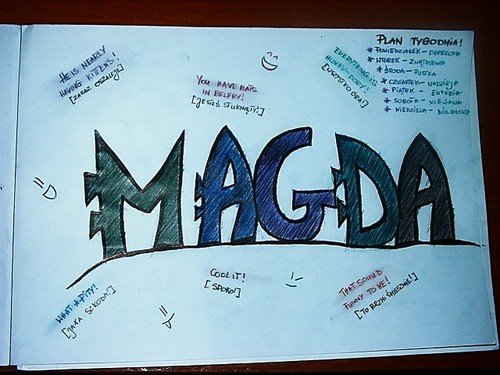 HE IS NEARLY
HAVING KITTENS!
[ZARAZ OSZALEJE]
YOU HAVE BATS
IN BELFRY!
[JESTEŚ STUKNIĘTY!]
EVERYTHING IS
HUNKY-DORY!
[WSZYSTKO GRA!]
PLAN TYGODNIA!
* PONIEDZIAŁEK - DEPRECHA
* WTOREK -
* ŚRODA - PUSTKA
* CZWARTEK - NADZIEJA
* PIĄTEK - EUFORIA
* SOBOTA -
* NIEDZIELA -
MAGDA
WHAT A PITY!
[JAKA SZKODA!]
COOL IT!
[SPOKO!]
THAT SOUND
FUNNY TO ME!
[TO BRZMI ŚMIESZNIE!]